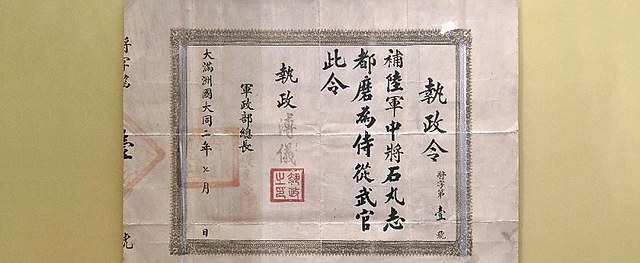 執政令
將字第壹號
補陸軍中將石丸志
都磨為侍從武官
此令
執政溥儀
執政之印
軍政部總長
大滿洲國大同二年七月 日
將字第
壹
號